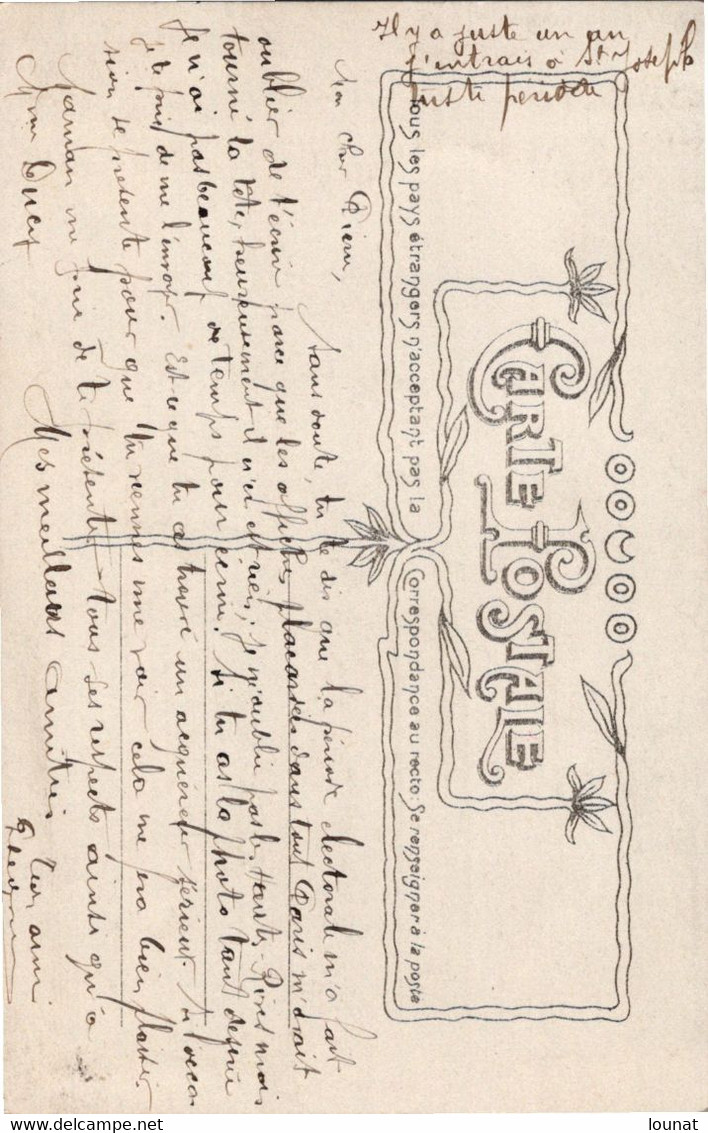 Il y a juste un an
j'entrais à St Joseph
juste periode
CARTE POSTALE
Tous les pays étrangers n'acceptant pas la
Correspondance au recto: Se renseigner à la poste
Mon cher Pierre,
Sans doute, tu te dis que la période électorale m'a fait
oublier de t'écrire parce que les affiches placardées dans tout Paris m'avait
tourné la tête, heureusement il n'en est rien; je n'oublie pas les mais
Je n'ai pas beaucoup de temps pour écrire. Si tu as la photo tant desirée
je te prie de me l'envoyer. Est-ce que tu as trouvé un acquéreur sérieux. Si l'occa
sion se présente pour que tu viennes me voir cela me fera bien plaisir.
Maman me prie de te présenter tous ses respects ainsi qu'à
Mme
Mes meilleures amitiés
Ton ami
lounat